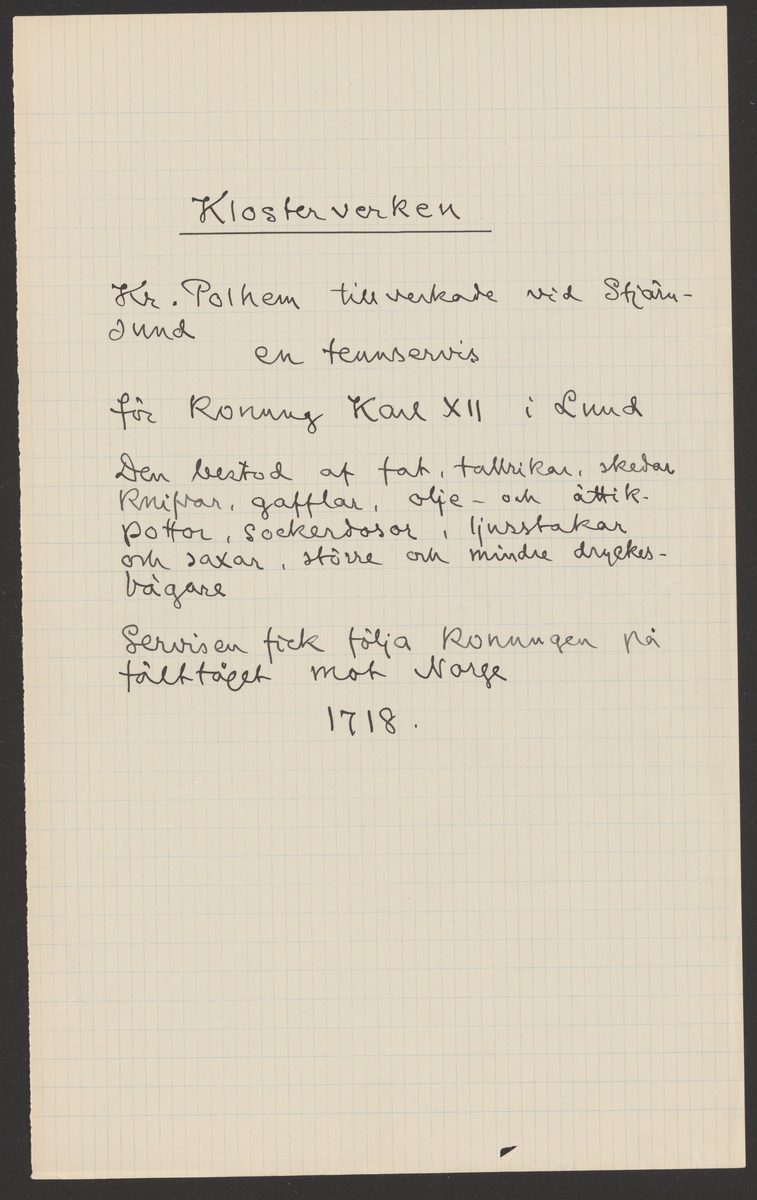 Klosterverken
Kr. Polhem tillverkade vid Stjärn-
sund
en tennservis
för Konung Karl XII i Lund
Den bestod af fat, tallrikar, skedar
Knifvar, gafflar, olje- och ättik-
pottor, sockerdosor, ljusstakar
och saxar, större och mindre dryckes-
bägare
Servisen fick följa Konungen på
fälttåget mot Norge
1718.